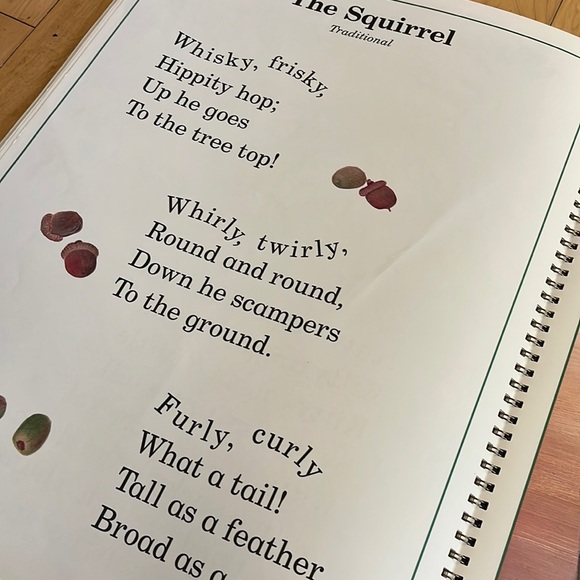 The Squirrel
Traditional
Whisky, frisky,
Hippity hop;
Up he goes
To the tree top!
Whirly, twirly,
Round and round,
Down he scampers
To the ground.
Furly, curly
What a tail!
Tall as a feather
Broad as a